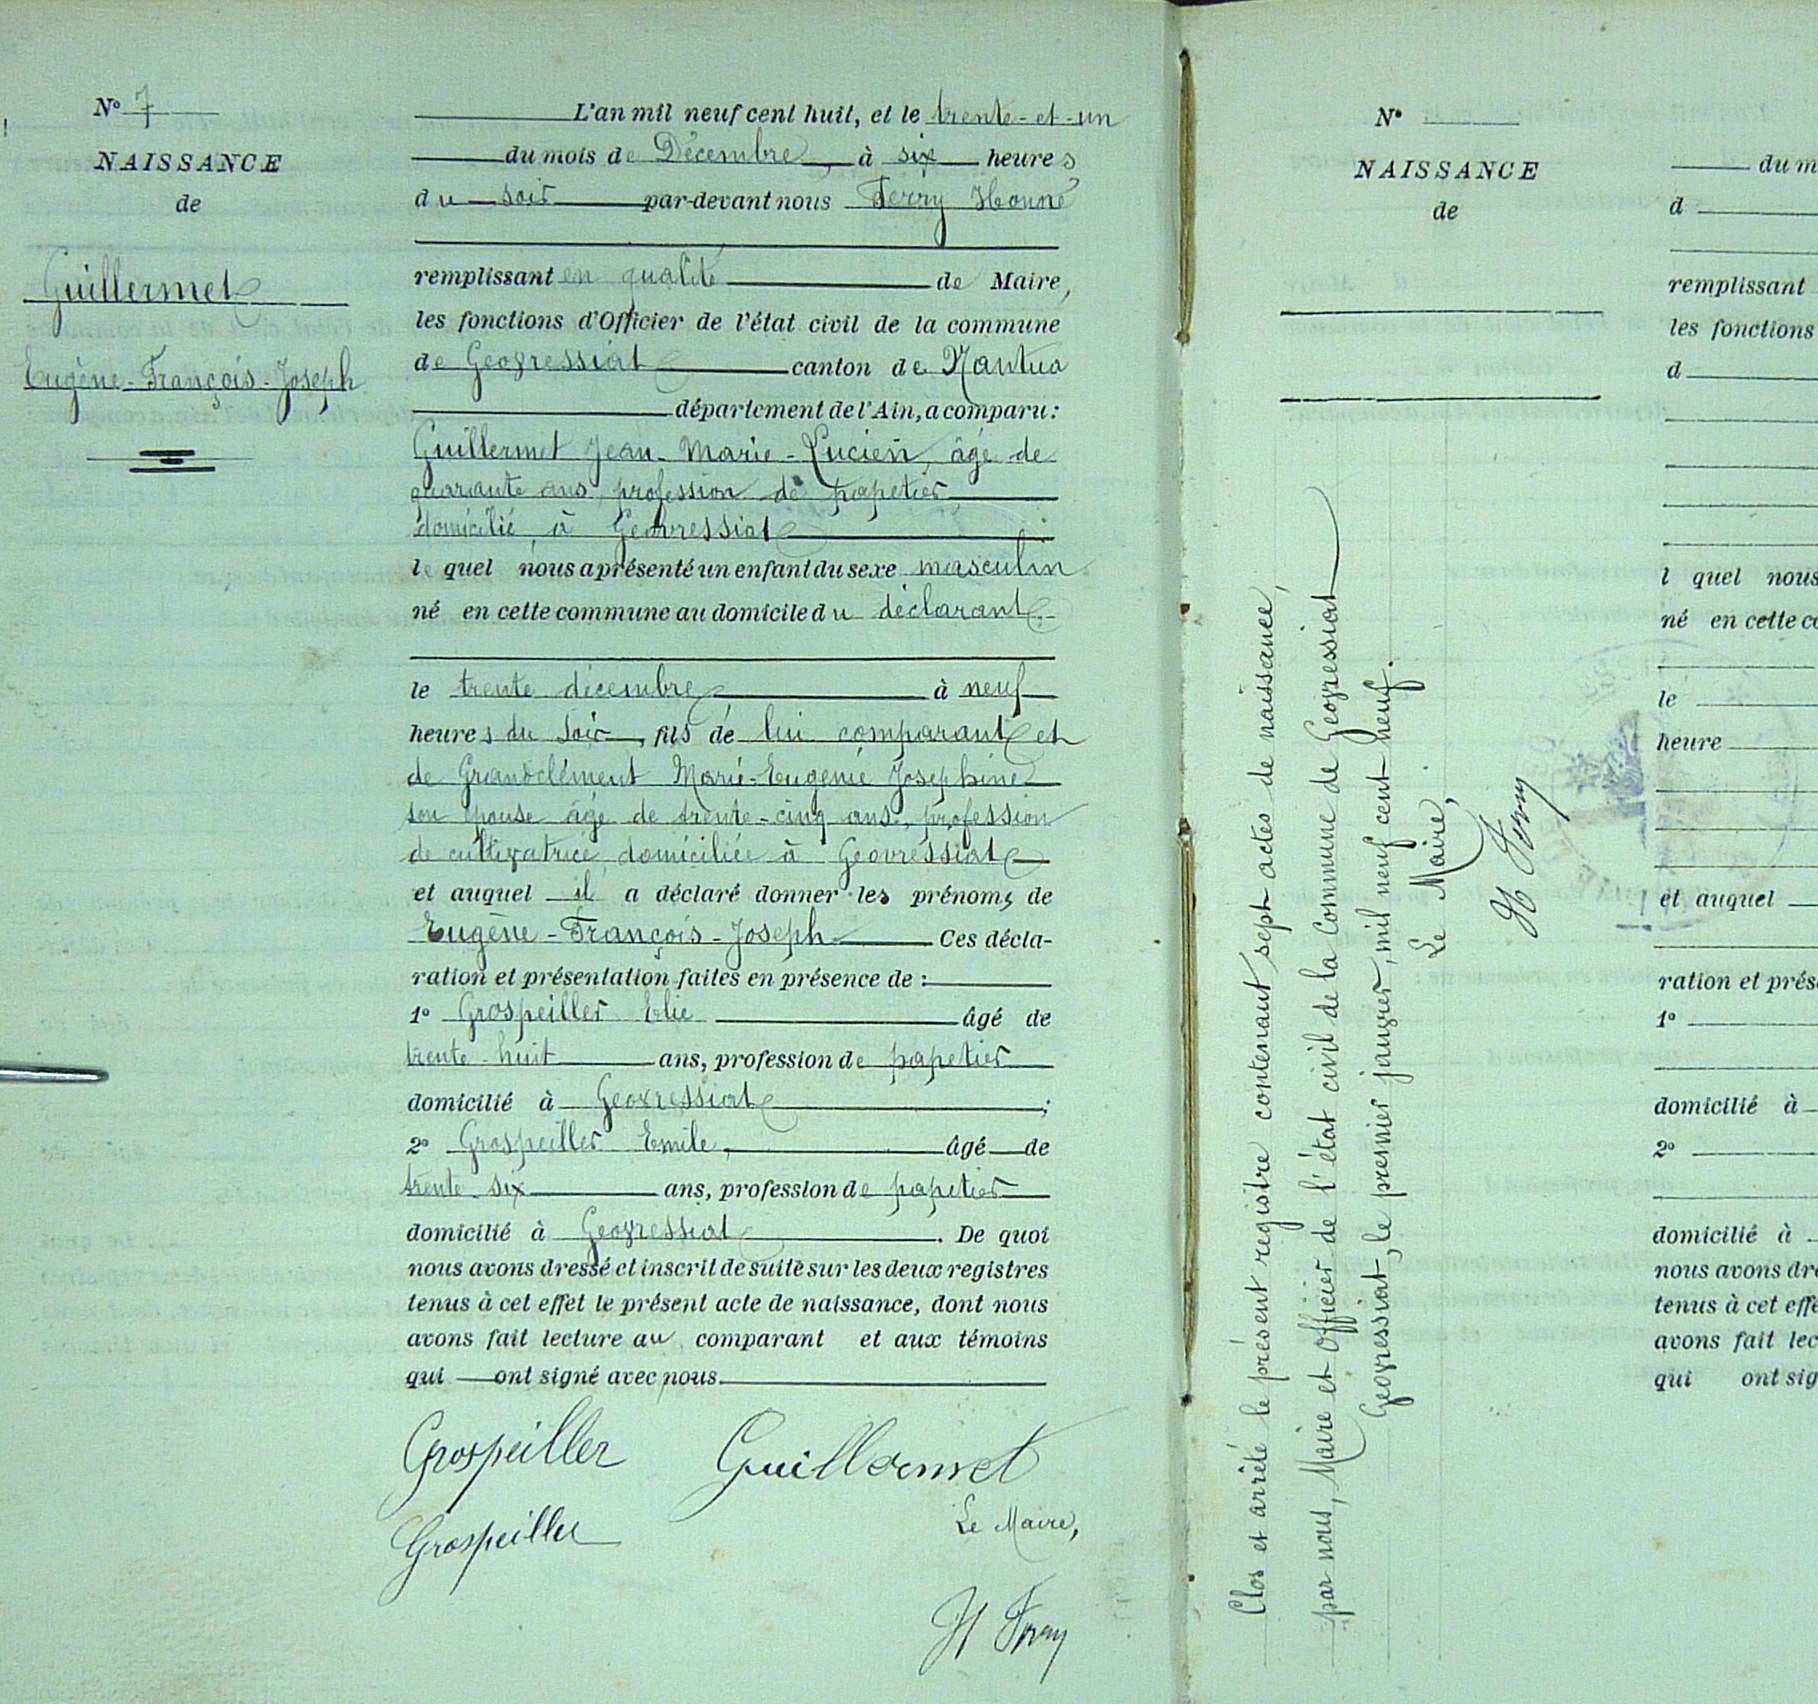 N° 7
NAISSANCE
de
Guillermet
Eugène-François-Joseph
L'an mil neuf cent huit, et le trente-et-un
du mois de Décembre, à six heures
du soir par-devant nous Ferry Honoré
remplissant en qualité de Maire,
les fonctions d'Officier de l'état civil de la commune
de Geovressiat canton de Nantua
département de l'Ain, a comparu:
Guillermet Jean-Marie-Lucien, âgé de
quarante ans, profession de papetier
domicilié à Geovressiat
lequel nous a présenté un enfant du sexe masculin
né en cette commune au domicile du déclarant
le trente décembre à neuf
heures du soir, fils de lui comparant et
de Grandclément Marie-Eugénie Joséphine
son épouse âgé de trente-cinq ans, profession
de cultivatrice domiciliée à Geovressiat
et auquel il a déclaré donner les prénoms de
Eugène-François-Joseph Ces décla-
ration et présentation faites en présence de :
1° Grospeiller Elie âgé de
trente-huit ans, profession de papetier
domicilié à Geovressiat ;
2° Grospeiller Emile, âgé de
trente-six ans, profession de papetier
domicilié à Geovressiat . De quoi
nous avons dressé et inscrit de suite sur les deux registres
tenus à cet effet le présent acte de naissance, dont nous
avons fait lecture au comparant et aux témoins
qui ont signé avec nous
Grospeiller Guillermet
Grospeiller
Le Maire,
H Ferry
N°
NAISSANCE
de
Clos et arrêté le présent registre contenant sept actes de naissance,
par nous, Maire et Officier de l'état civil de la Commune de Geovressiat
Geovressiat, le premier janvier, mil neuf cent neuf.
Le Maire,
H Ferry
du m
d
remplissant
les fonctions
d
l quel nous
né en cette co
le
heure
et auquel
ration et prés
1°
domicilié à
2°
domicilié à
nous avons dre
tenus à cet effe
avons fait lec
qui ont sig